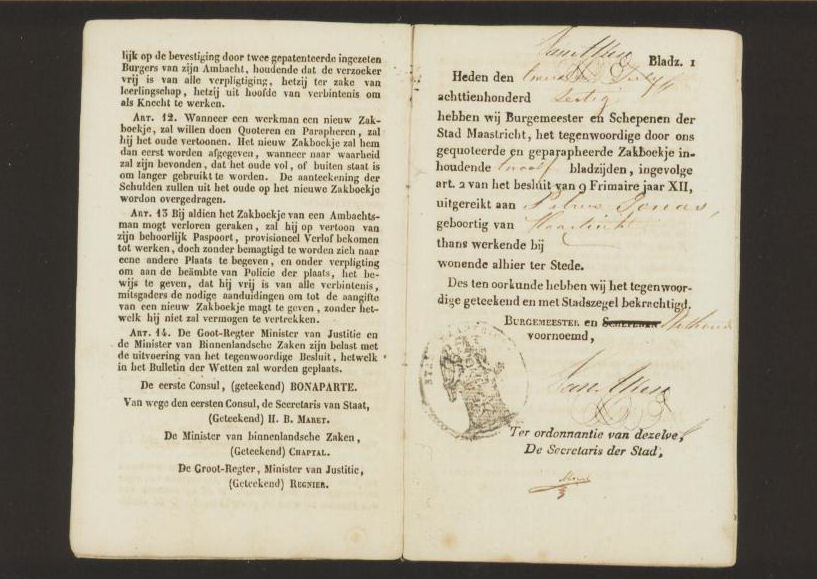 lijk op de bevestiging door twee gepatenteerde ingezeten
Burgers van zijn Ambacht, houdende dat de verzoeker
vrij is van alle verpligtiging, hetzij ter zake van
leerlingschap, hetzij uit hoofde van verbintenis om
als Knecht te werken.
ART. 12. Wanneer een werkman een nieuw Zak-
boekje, zal willen doen Quoteren en Parapheren, zal
hij het oude vertoonen. Het nieuw Zakboekje zal hem
dan eerst worden afgegeven, wanneer naar waarheid
zal zijn bevonden, dat het oude vol, of buiten staat is
om langer gebruikt te worden. De aanteekening der
Schulden zullen uit het oude op het nieuwe Zakboekje
wordon overgedragen.
ART. 13 Bij aldien het Zakboekje van een Ambachts-
man mogt verloren geraken, zal hij op vertoon van
zijn behoorlijk Paspoort, provisioneel Verlof bekomen
tot werken, doch zonder bemagtigd te worden zich naar
eene andere Plaats te begeven, en onder verpligting
om aan de beämbte van Policie der plaats, het be-
wijs te geven, dat hij vrij is van alle verbintenis,
mitsgaders de nodige aanduidingen om tot de aangifte
van een nieuw Zakboekje magt te geven, zonder het-
welk hij niet zal vermogen te vertrekken.
ART. 14. De Goot-Regter Minister van Justitie en
de Minister van Binnenlandsche Zaken zijn belast met
de uitvoering van het tegenwoordige Besluit, hetwelk
in het Bulletin der Wetten zal worden geplaats.
De eerste Consul, (geteekend) BONAPARTE.
Van wege den eersten Consul, de Secretaris van Staat,
(Geteekend) H. B. MARET.
De Minister van binnenlandsche Zaken,
(Geteekend) CHAPTAL.
De Groot-Regter, Minister van Justitie,
(Geteekend) REGNIER.
Bladz. 1
Heden den July
achttienhonderd sestig
hebben wij Burgemeester en Schepenen der
Stad Maastricht, het tegenwoordige door ons
gequoteerde en geparapheerde Zakboekje in-
houdende twaalf bladzijden, ingevolge
art. 2 van het besluit van 9 Frimaire jaar XII,
uitgereikt aan Petrus Jonas,
geboortig van Maastricht
thans werkende bij
wonende alhier ter Stede.
Des ten oorkunde hebben wij het tegenwoor-
dige geteekend en met Stadszegel bekrachtigd,
BURGEMEESTER en SCHEPENEN Wethouders
voornoemd,
Ter ordonnantie van dezelve,
De Secretaris der Stad,